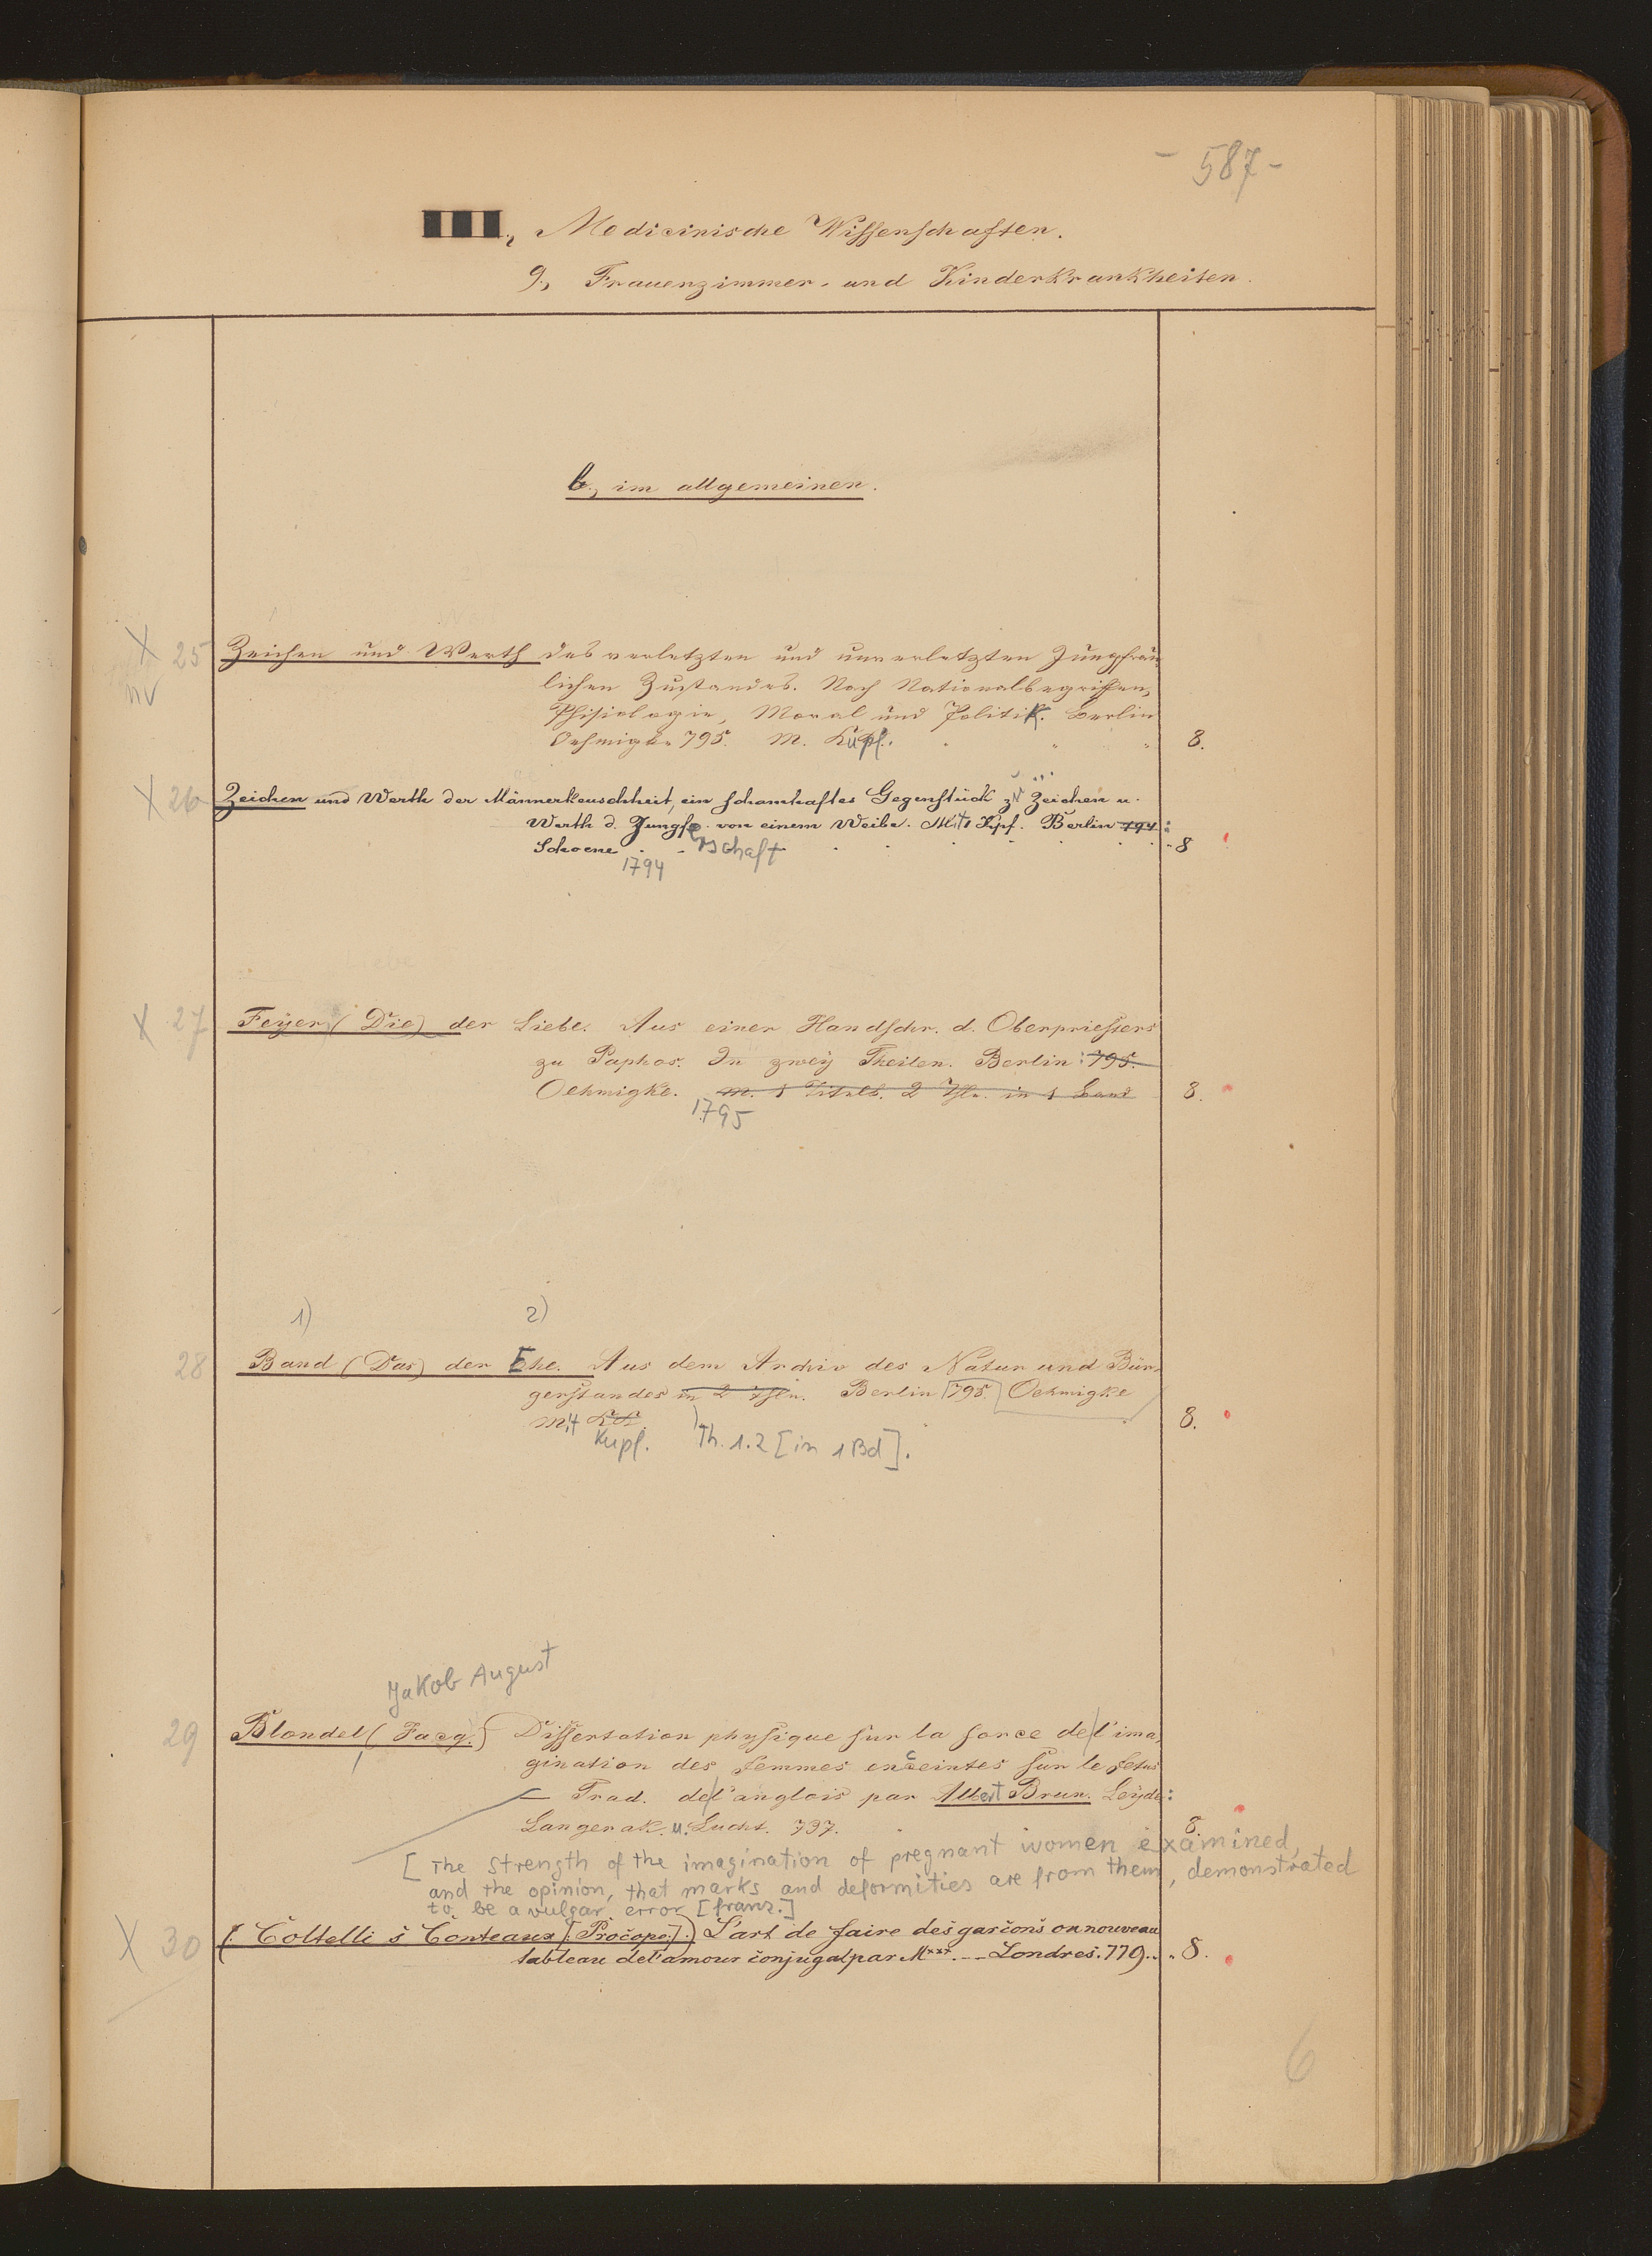 - 587 -
III., Medicinische Wissenschaften.
9., Frauenzimmer- und Kinderkrankheiten.
b., im allgemeinen.
X 25 Zeichen und Werth des verletzten und unverletzten Jungfräu
nv
lichen Zustandes. Nach Nationalbegriffen,
Phisiologie, Moral und Politik. Berlin
Oehmigke 795. M. Kupf. 8.
X 26 Zeichen und Werth der Männerkeuschheit, ein schamhaftes Gegenstück zu Zeichen u.
Werth d. Jungfe. von einem Weibe. Mit 1 Kpf. Berlin 794:
Schoene rschaft 8
1794
X 27 Feyer (Die) der Liebe. Aus einer Handschr. d. Oberpriesters
zu Paphos. In zwey Theilen. Berlin: 795.
Oehmigke. m. 1 Titelb. 2 Thle. in 1 Band 8.
1795
1) 2)
28 Band (Das) der Ehe. Aus dem Archiv des Natur und Bür-
gerstandes in 2 Thln. Berlin 795. Oehmigke
mit KK. 8.
Kupf. Th. 1.2 [in 1 Bd].
Jakob August
29 Blondel (Jacq.) Dissertation physique sur la force de l'ima
gination des femmes enceintes sur le fetus
— Trad. de l'anglois par Albert Brun. Leyde:
Langerak. u. Lucht. 737. 8.
[The strength of the imagination of pregnant women examined,
and the opinion, that marks and deformities are from them, demonstrated
to be a vulgar error [franz.]
X 30 (Coltelli s Couteaux [Procope].) L'art de faire des garçons ou nouveau
tableau de l'amour conjugal par M*** Londres. 779. 8.
6